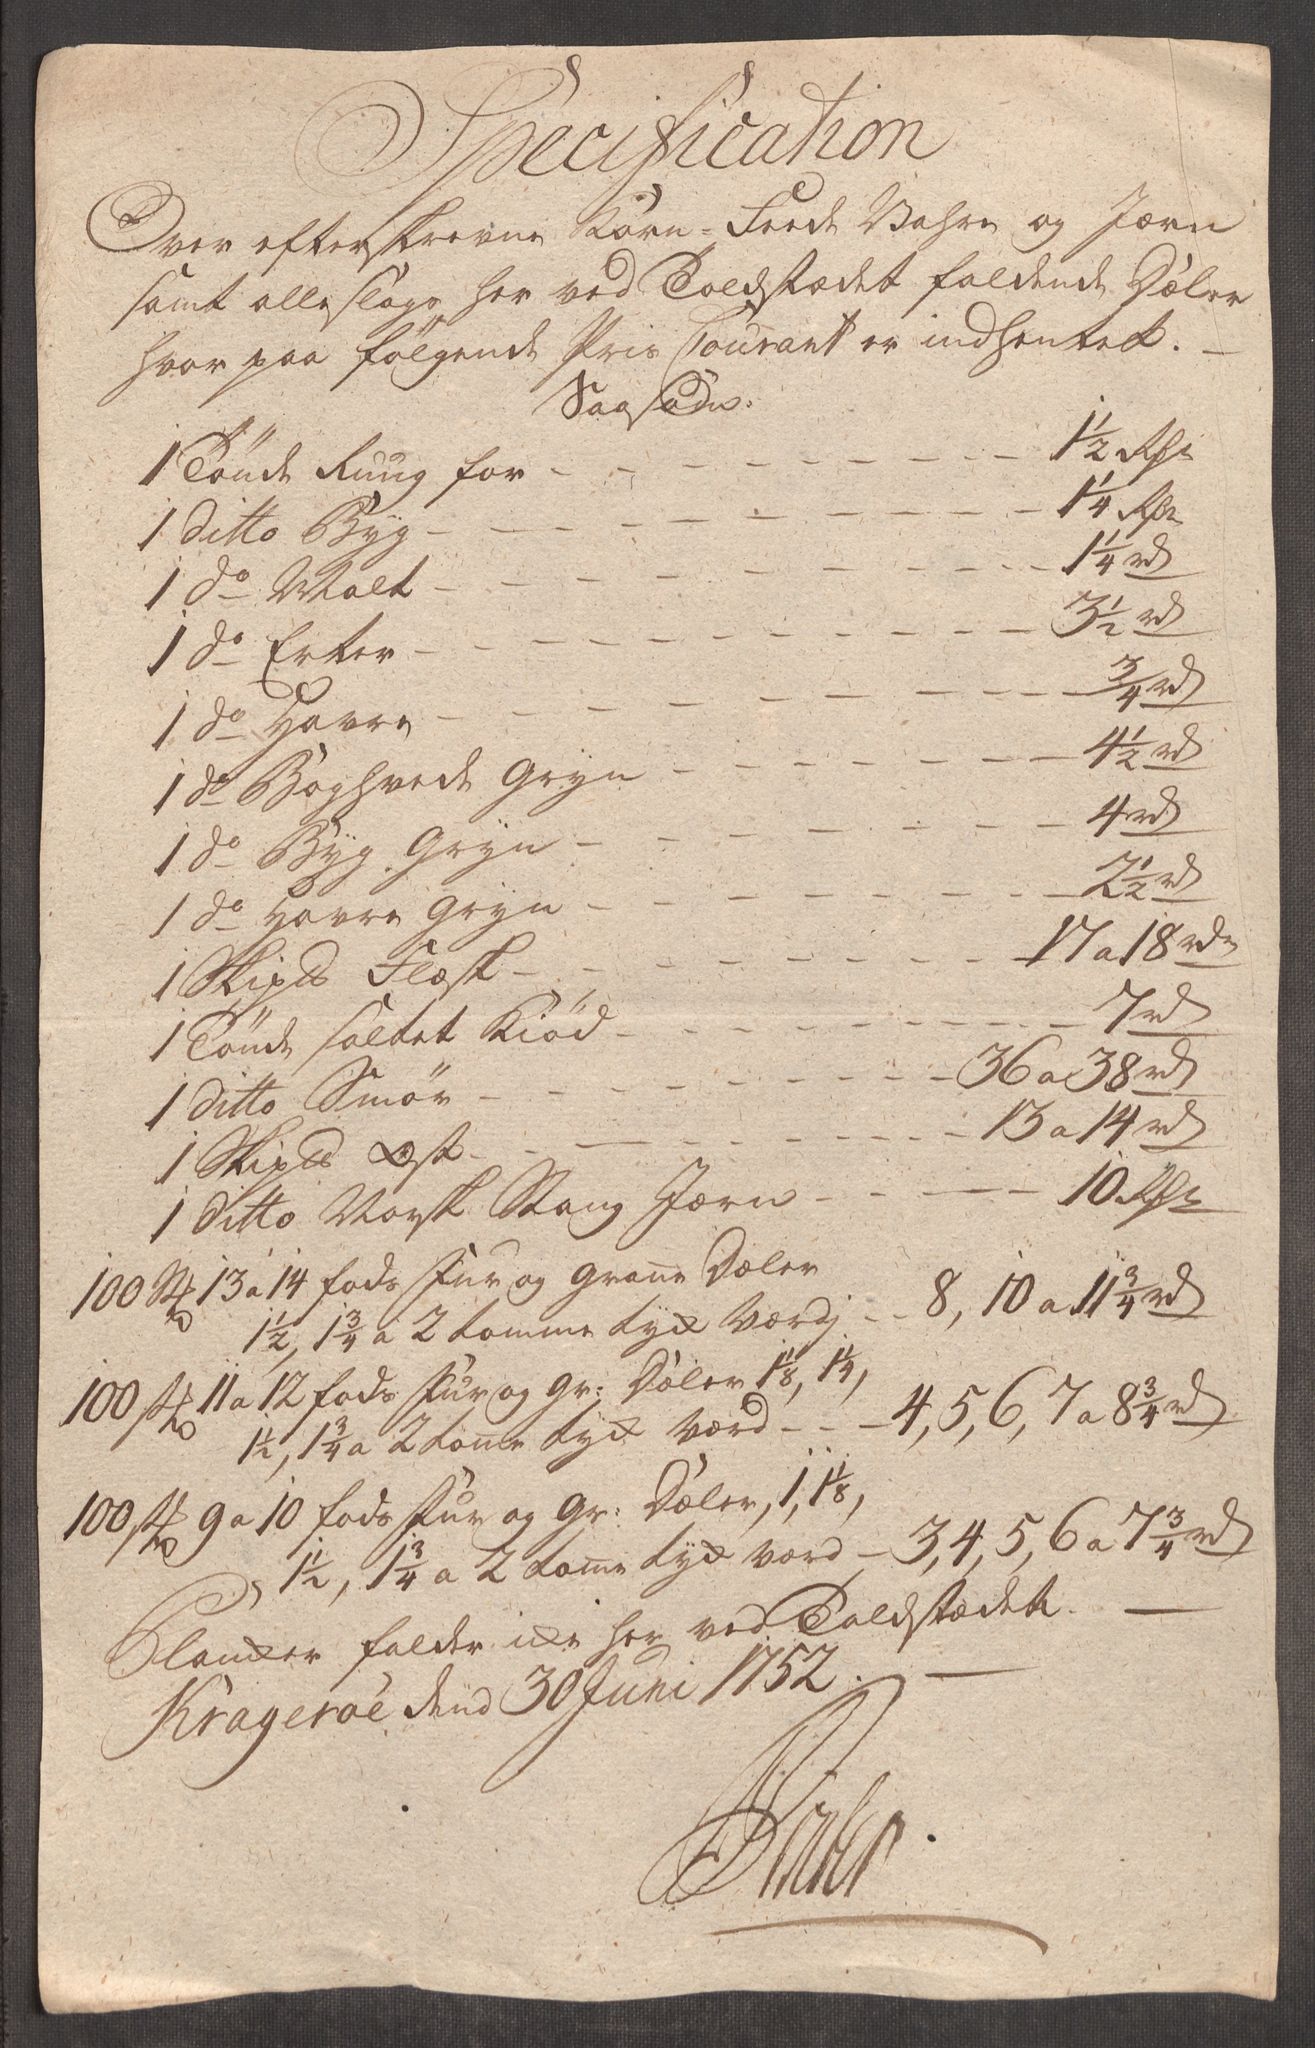 Specification
Over efterskrevne Korn- Feede Vahre og Jærn
samt alle slags her ved Toldstædet faldende Dæler
hvor paa følgende Pris Courant er indhentet. —
Saasom:
1 Tönde Rüüg for - - - 1½ Rdr
1 ditto Byg - - - 1¼ Rdr
1 do Malt - - - 1¼ rd
1 do Erter - - - 3½ rd
1 do Havre - - - ¾ rd
1 do Boghvede Gryn - - - 4½ rd
1 do Byg Gryn - - - 4 rd
1 do Havre Gryn - - - 2½ rd
1 Skipd Flæsk - - - 17 a 18 rdr
1 Tönde saltet Kiöd - - - 7 rd
1 ditto Smör - - - 36 a 38 rd
1 Skipd Ost - - - 13 a 14 rd
1 ditto Norsk Stang Jærn - - - 10 Rdr
100 Stk 13 a 14 fods Fur og Grane Dæler
1½, 1¾ a 2 tomme tyk værdj - - 8, 10 a 11¾ rd
100 stk 11 a 12 fods Fur og Gr: Dæler 1⅛, 1¼,
1½, 1¾ a 2 tome tyk værd - - - 4, 5, 6, 7 a 8¾ rd
100 stk 9 a 10 fods Fur og Gr: Dæler, 1, 1⅛,
1½, 1¾ a 2 tome tyk værd - 3, 4, 5, 6 a 7¾ rd
Planker falder ike her ved Toldstædet. —
Krageröe dend 30 Juni 1752. —